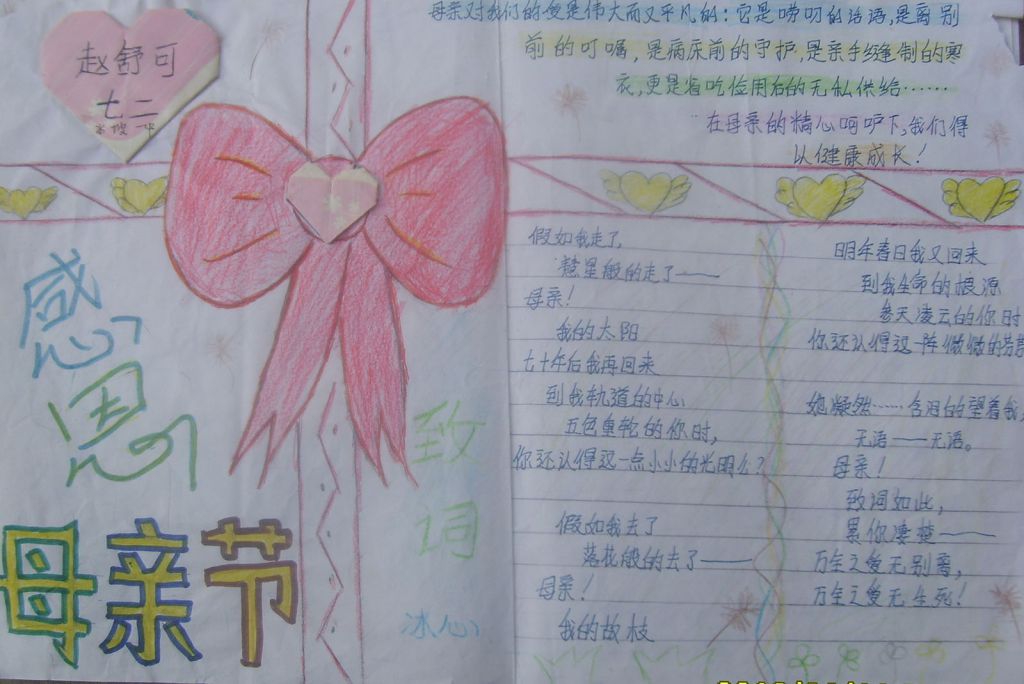 赵舒可
七二
感
恩
母亲节
致
词
冰心
母亲对我们的爱是伟大而又平凡的：它是唠叨的话语,是离别
前的叮嘱，是病床前的守护,是亲手缝制的寒
衣,更是省吃俭用后的无私供给……
在母亲的精心呵护下,我们得
以健康成长！
假如我走了,
彗星般的走了——
母亲！
我的太阳
七十年后我再回来
到我轨道的中心
五色重轮的你时,
你还认得这一点小小的光明么？
假如我去了
落花般的去了——
母亲！
我的故枝
明年春日我又回来
到我生命的根源
参天凌云的你时
你还认得这一阵微微的芬
她凝然……含泪的望着我,
无语——无语。
母亲！
致词如此,
累你凄楚——
万全之爱无别离,
万全之爱无生死！